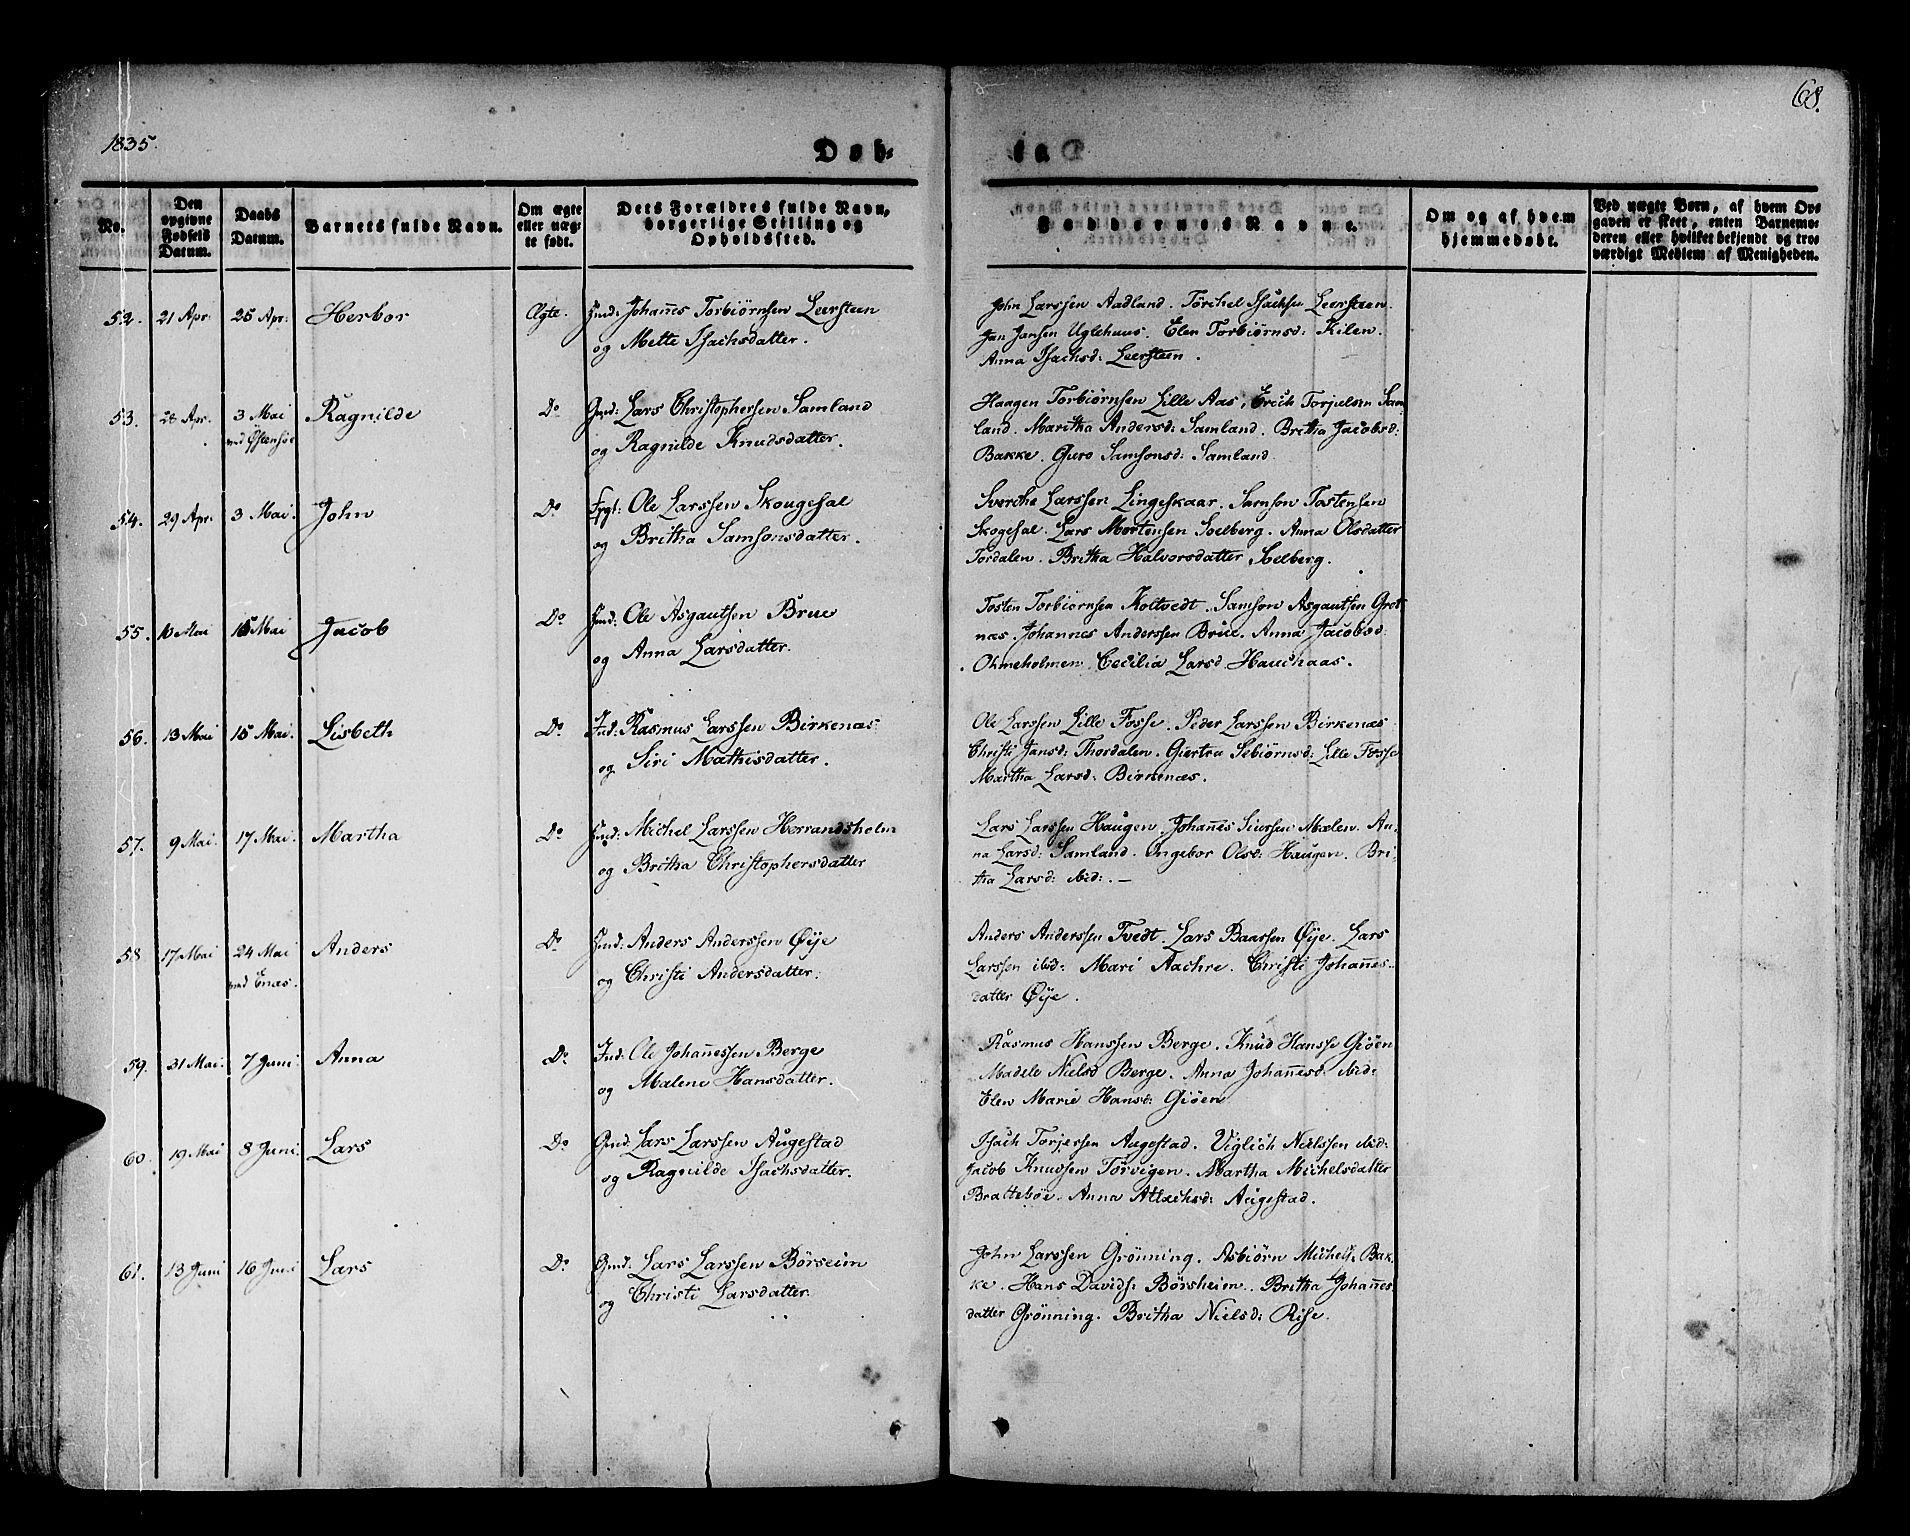 68.
1835.
Døb-
No.
Den opgivne Fødsels Datum.
Daabs Datum.
Barnets fulde Navn.
Om ægte eller uægte født.
Dets Forældres fulde Navn, borgerlige Stilling og Opholdssted.
Faddernes Navne.
Om og af hvem hjemmedøbt.
Ved uægte Børn, af hvem Opgaven er skeet, enten Barnemoderen eller hvilket bekjendt og troværdigt Medlem af Menigheden.
52. 21 Apr. 25 Apr: Herbor Ægte. Huusm: Johañes Torbiørnsen Leersteen
og Mette Isachsdatter.
John Larssen Aadland. Torchel Isachsen Leersteen.
Jan Jansen Uglehuus. Elen Torbiørnsd: Kilen.
Anna Isachsd: Leersteen.
53. 28 Apr. 3 Mai Ragnilde Do Gmd: Lars Christophersen Samland
ved Østensøe
og Ragnilde Knudsdatter.
Haagen Torbiørnsen Lille Aas, Erich Torjelsen Sam-
land. Maritha Andersd: Samland. Britha Jacobsd:
Bakke. Guro Samsonsd: Samland
54. 29 Apr. 3 Mai. John Do Fpgt: Ole Larssen Skougesal
og Britha Samsonsdatter.
Sverche Larssen Lingeskaar. Samson Tostensen
Skogesal. Lars Mortensen Soelberg. Anna Olsdatter
Tordalen. Britha Halvorsdatter Soelberg.
55. 10 Mai 15 Mai Jacob Do Ole Asgautsen Brue
og Anna Larsdatter.
Tosten Torbiørnsen Koltvedt. Samson Asgautsen Grot
næs. Johannes Anderssen Brue. Anna Jacobsd:
Okneholmen. Cecilia Larsd. Hauchaas.
56. 13 Mai 15 Mai. Lisbeth Do Ind: Rasmus Larssen Birkenæs
og Siri Mathisdatter.
Ole Larssen Lille Fosse. Peder Larssen Birkenæs
Christi Jansd: Thordalen. Giertra Sebiørnsd: Lille Fosse
Martha Larsd: Birkenæs.
57. 9 Mai. 17 Mai. Martha Do Michel Larssen Herrandsholm
og Britha Christophersdatter
Lars Larssen Haugen. Johañes Siursen Mælen. An-
na Larsd: Samland. Ingebor Olsd: Haugen. Bri-
tha Larsd: ibid:. —
58 17 Mai 24 Mai Anders Do Anders Anderssen Øye
ved Enæs.
og Christi Andersdatter.
Anders Anderssen Tvedt. Lars Baarsen Øye. Lars
Larssen ibid: Mari Aachre. Christi Johañes-
datter Øye.
59. 31 Mai. 7 Juni. Anna Do Ind: Ole Johañessen Berge
og Malene Hansdatter.
Rasmus Hanssen Berge. Knud Hansse Giøen
Madele Nielsd Berge. Anna Johañesd. ibid:
Elen Marie Hansd: Giøen
60. 19 Mai 8 Juni. Lars Do Gmd: Lars Larssen Augestad
og Ragnilde Isachsdatter.
Isach Torjessen Augestad. Viglich Nielssen ibid:
Jacob Knudsen Tørvigen. Martha Michelsdatter
Brattebøe. Anna Atlachsd: Augestad.
61. 13 Juni 16 Juni Lars Do Gmd: Lars Larssen Børseim
og Christi Larsdatter.
John Larssen Grønning. Asbiørn Michels: Bak-
ke. Hans Davids: Børsheim. Britha Johañes
datter Grønning. Britha Nielsd: Rise.